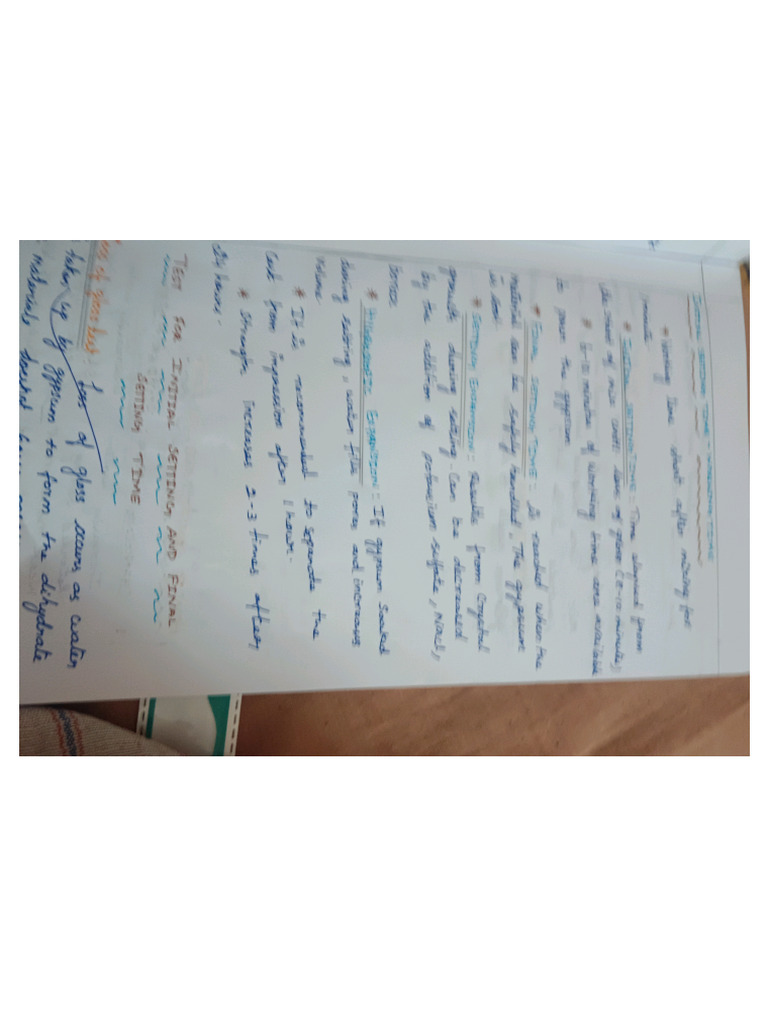 INITIAL SETTING TIME & WORKING TIME
* Working time start after mixing for
1 minute
* INITIAL SETTING TIME : Time elapsed from
the start of mix until loss of gloss (8-10 minutes)
* 5-10 minutes of working time are available
to pour the gypsum
* FINAL SETTING TIME : is reached when the
material can be safely handled. The gypsum
is
* SETTING EXPANSION : Results from Crystal
growth during setting. Can be decreased
by the addition of potassium sulfate, NaCl,
borax.
* HYGROSCOPIC EXPANSION : If gypsum Soaked
during setting, water fills pores and increases
volume
* It is recommended to separate the
Cast from impression after 1 hour.
* Strength increases 2-3 times after
24 hours.
TEST FOR INITIAL SETTING AND FINAL
SETTING TIME
loss of gloss test : loss of gloss occurs as water
taken up by gypsum to form the dihydrate
materials